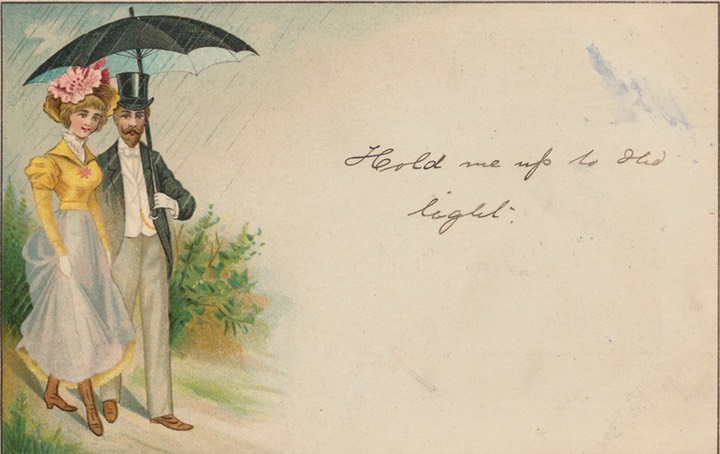 Hold me up to the
light.